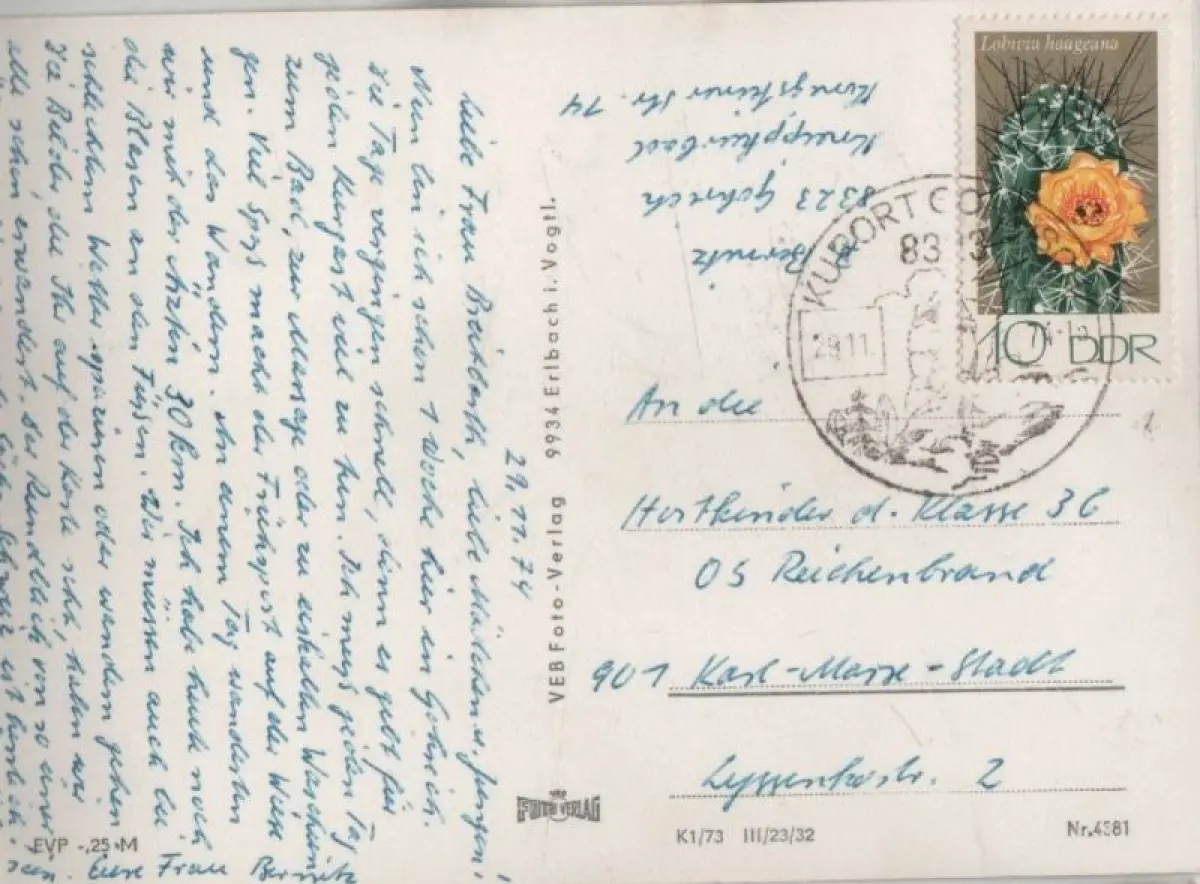 29.11.74
Liebe Frau Breitberth, liebe Mädchen u. Jungen!
Nun bin ich schon 1 Woche hier in Gohrisch.
Die Tage vergingen schnell, denn es gibt für
jeden Kurgast viel zu tun. Ich muß jeden Tag
zum Bad, zur Massage oder zu eiskalten Waschun-
gen. Viel Spaß macht der Frühsport auf der Wiese
und das Wandern. An einem Tag wanderten
wir mit der Ärztin 30 km. Ich habe heute noch
die Blasen an den Füßen. Wir müssen auch bei
schlechtem Wetter spazieren oder wandern gehen
Die Bilder, die Ihr auf der Karte seht, haben wir
alle schon erwandert. Der Rundblick von so einer
ist herrlich
Eure Frau Bernitz
EVP -,25 M
VEB Foto-Verlag 9934 Erlbach i. Vogtl.
FOTO VERLAG
Bernitz
8323 Gohrisch
Kneippkurbad
Königsteiner Str. 74
Lobivia haageana
10 DDR
KURORT GO
83
29.11.
An die
Hortkinder d. Klasse 3c
OS Reichenbrand
901 Karl-Marx-Stadt
Lyssenkostr. 2
K1/73 III/23/32
Nr.4381